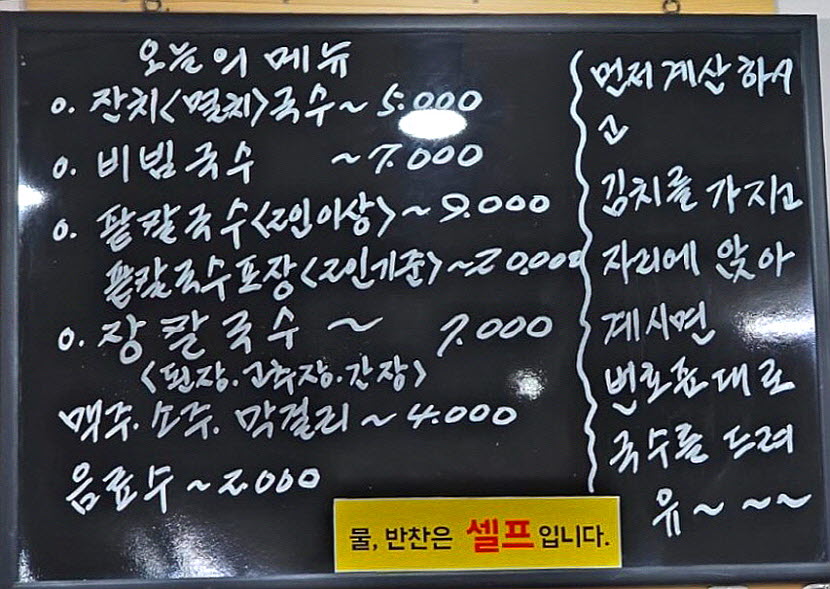 오늘의 메뉴
o. 잔치<멸치>국수 ~ 5.000
o. 비빔국수 ~ 7.000
o. 팥칼국수<2인이상> ~ 9.000
팥칼국수포장<2인기준> ~ 20.000
o. 장칼국수 ~ 7.000
<된장.고추장.간장>
맥주.소주.막걸리 ~ 4.000
음료수 ~ 2.000
먼저 계산 하시
고
김치를 가지고
자리에 앉아
계시면
번호표대로
국수를 드려
유~ ~ ~
물, 반찬은 셀프입니다.